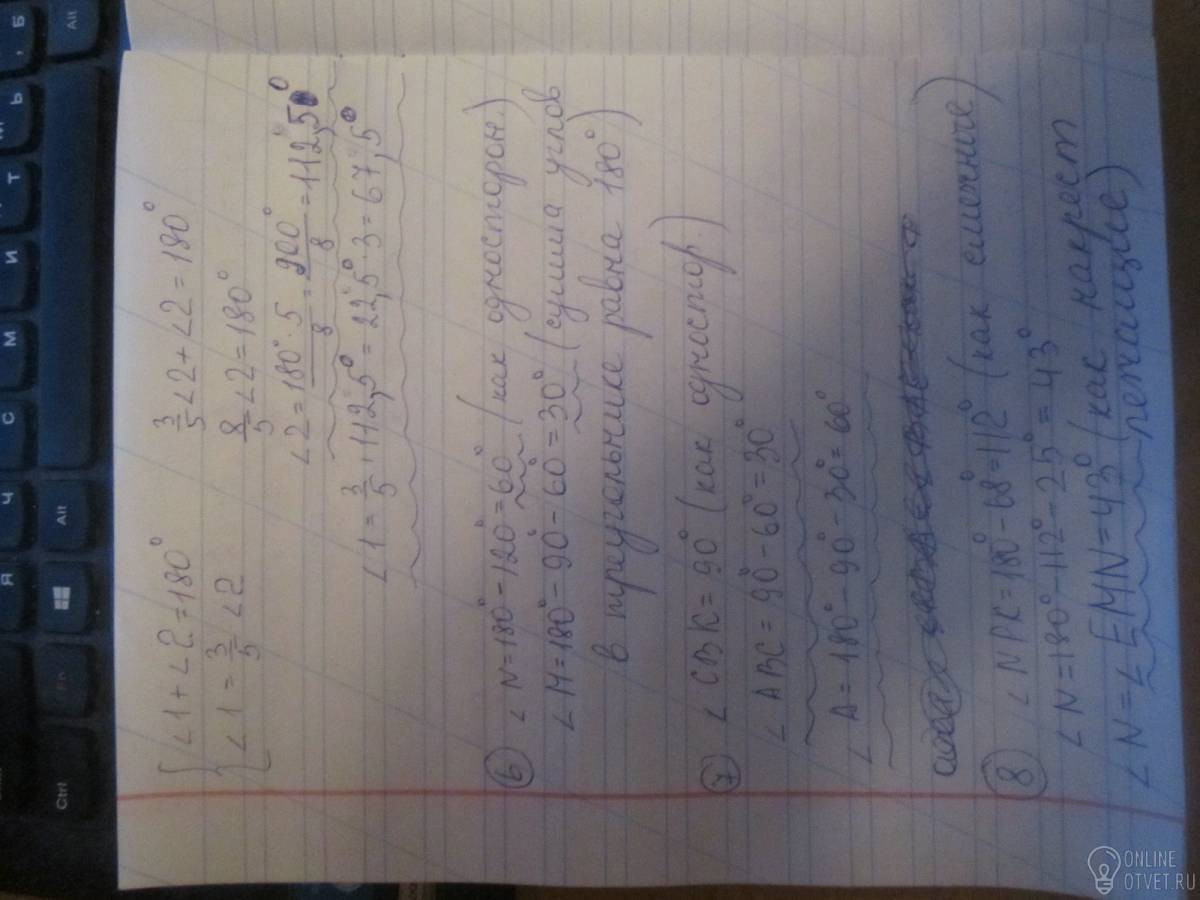 { ∠1 + ∠2 = 180°
∠1 = 3/5 ∠2
3/5 ∠2 + ∠2 = 180°
8/5 ∠2 = 180°
∠2 = 180°·5/8 = 900°/8 = 112,5°
∠1 = 3/5 · 112,5° = 22,5° · 3 = 67,5°
6 ∠N = 180° - 120° = 60° (как односторон.)
∠M = 180° - 90° - 60° = 30° (сумма углов
в треугольнике равна 180°)
7 ∠CBK = 90° (как одностор.)
∠ABC = 90° - 60° = 30°
∠A = 180° - 90° - 30° = 60°
8 ∠NPK = 180° - 68° = 112° (как смежные)
∠N = 180° - 112° - 25° = 43°
∠N = ∠EMN = 43° (как накрест
лежащие)
Alt
Б
,
Ь
М
Т
И
М
С
Ч
Alt
Я
Fn
Ctrl
ONLINE
OTVET.RU